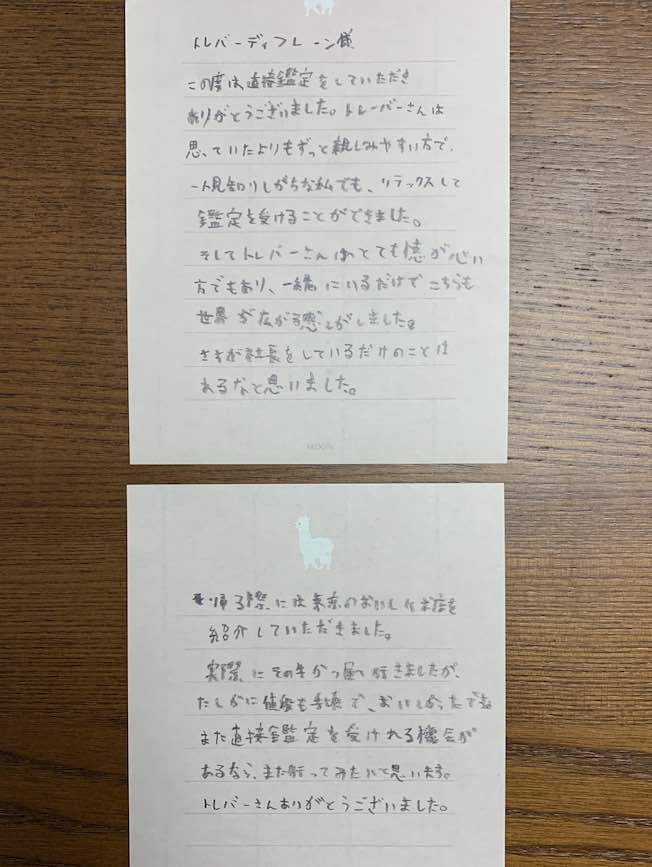 トレバーディフレーン様
この度は、直接鑑定をしていただき
ありがとうございました。トレーバーさんは
思っていたよりもずっと親しみやすい方で、
人見知りしがちな私でも、リラックスして
鑑定を受けることができました。
そしてトレバーさんはとても懐が心い
方でもあり、一緒にいるだけでこちらも
世界が広がる感じがしました。
さすが社長をしているだけのことは
あるなと思いました。
帰る際には東京のおいしいお店を
紹介していただきました。
実際にその牛かつ屋へ行きましたが、
たしかに値段も手頃で、おいしかったです
また直接鑑定を受けれる機会が
あるなら、また行ってみたいと思います。
トレバーさんありがとうございました。